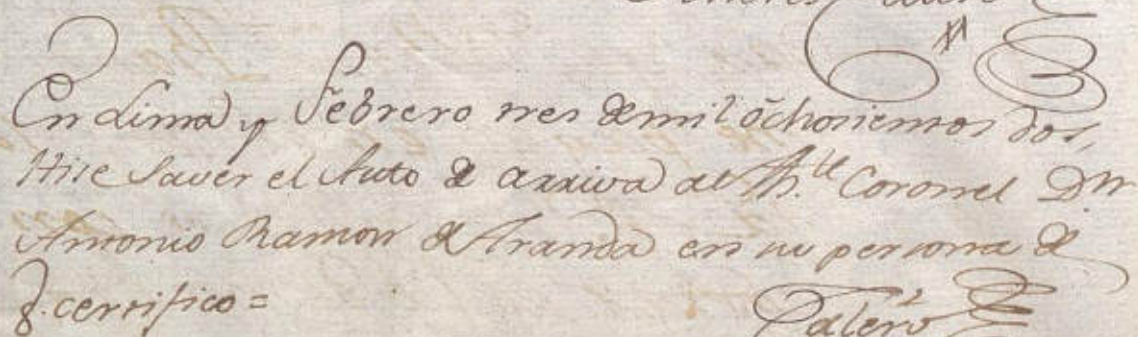 En Lima y Febrero tres de mil ōchosientos dos,
Hise Saver el Auto de arriva al Th.te Coronel Dn
Antonio Ramon de Aranda en su persona de
q. certifico =